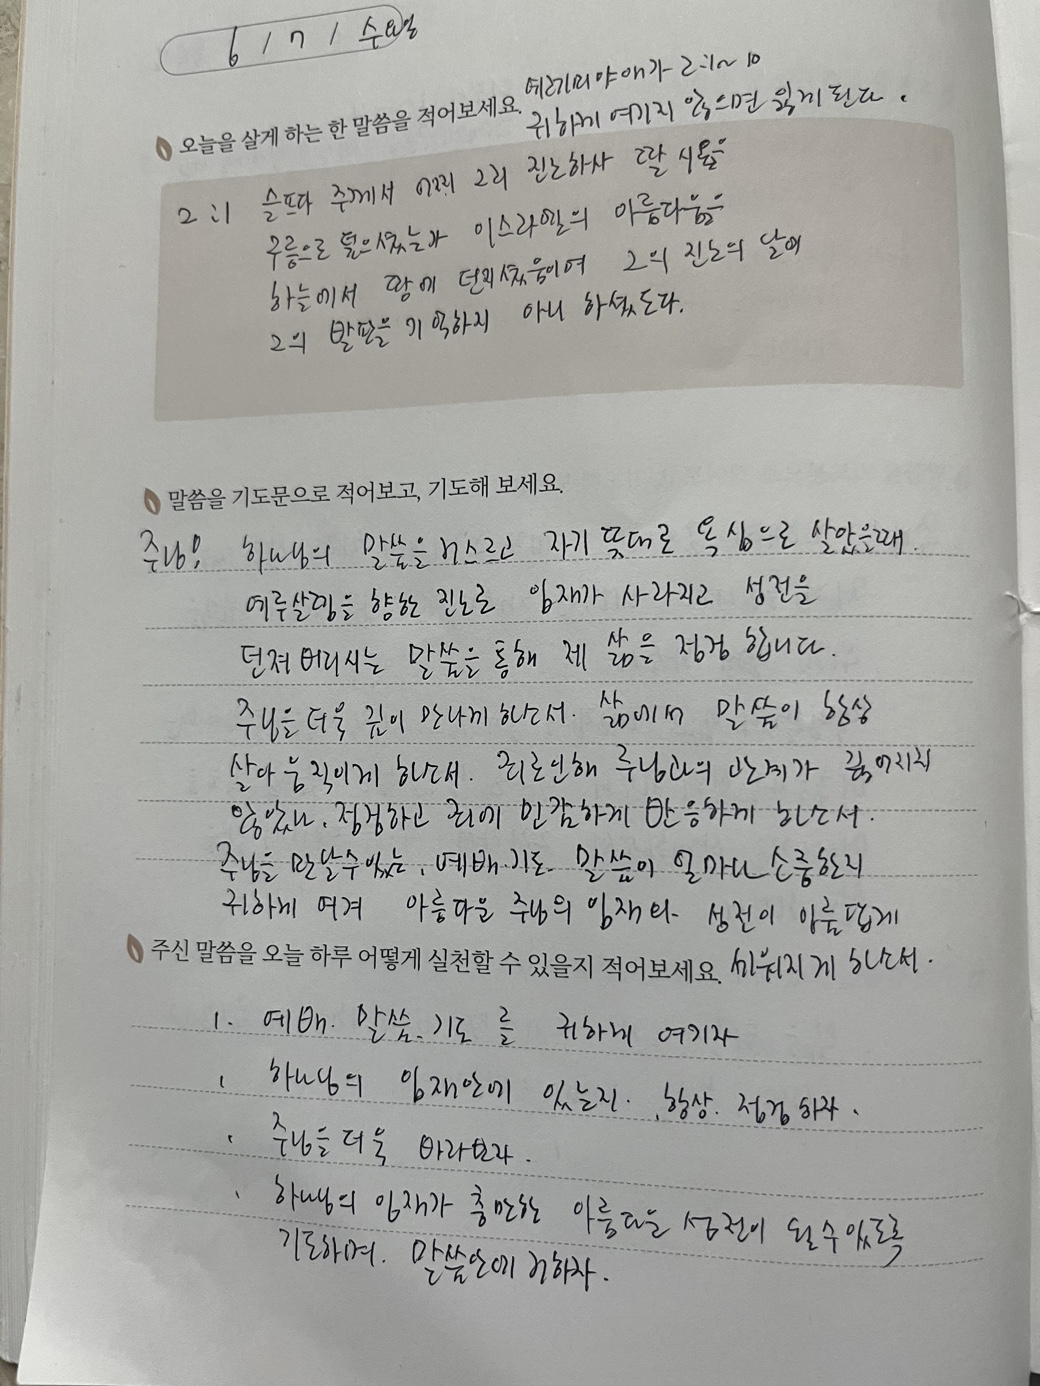 6 / 7 / 수요일
예레미야애가 2:1~10
오늘을 살게 하는 한 말씀을 적어보세요. 귀하게 여기지 않으면 잃게 된다.
2:1 슬프다 주께서 어찌 그리 진노하사 딸 시온을
구름으로 덮으셨는가 이스라엘의 아름다움을
하늘에서 땅에 던지셨음이여 그의 진노의 날에
그의 발판을 기억하지 아니 하셨도다.
말씀을 기도문으로 적어보고, 기도해 보세요.
주님! 하나님의 말씀을 거스르고 자기 뜻대로 욕심으로 살았을때.
예루살렘을 향한 진노로 임재가 사라지고 성전을
던져 버리시는 말씀을 통해 제 삶을 점검 합니다.
주님을 더욱 깊이 만나게 하소서. 삶에서 말씀이 항상
살아 움직이게 하소서. 죄로인해 주님과의 관계가 끊어지지
않았나, 점검하고 죄에 민감하게 반응하게 하소서.
주님을 만날수있는, 예배.기도. 말씀이 얼마나 소중한지
귀하게 여겨 아름다운 주님의 임재와 성전이 아름답게
주신 말씀을 오늘 하루 어떻게 실천할 수 있을지 적어보세요. 세워지게 하소서.
1. 예배. 말씀. 기도 를 귀하게 여기자
. 하나님의 임재안에 있는지. 항상. 점검하자.
. 주님을 더욱 바라보자.
. 하나님의 임재가 충만한 아름다운 성전이 될수있도록
기도하며. 말씀안에 거하자.